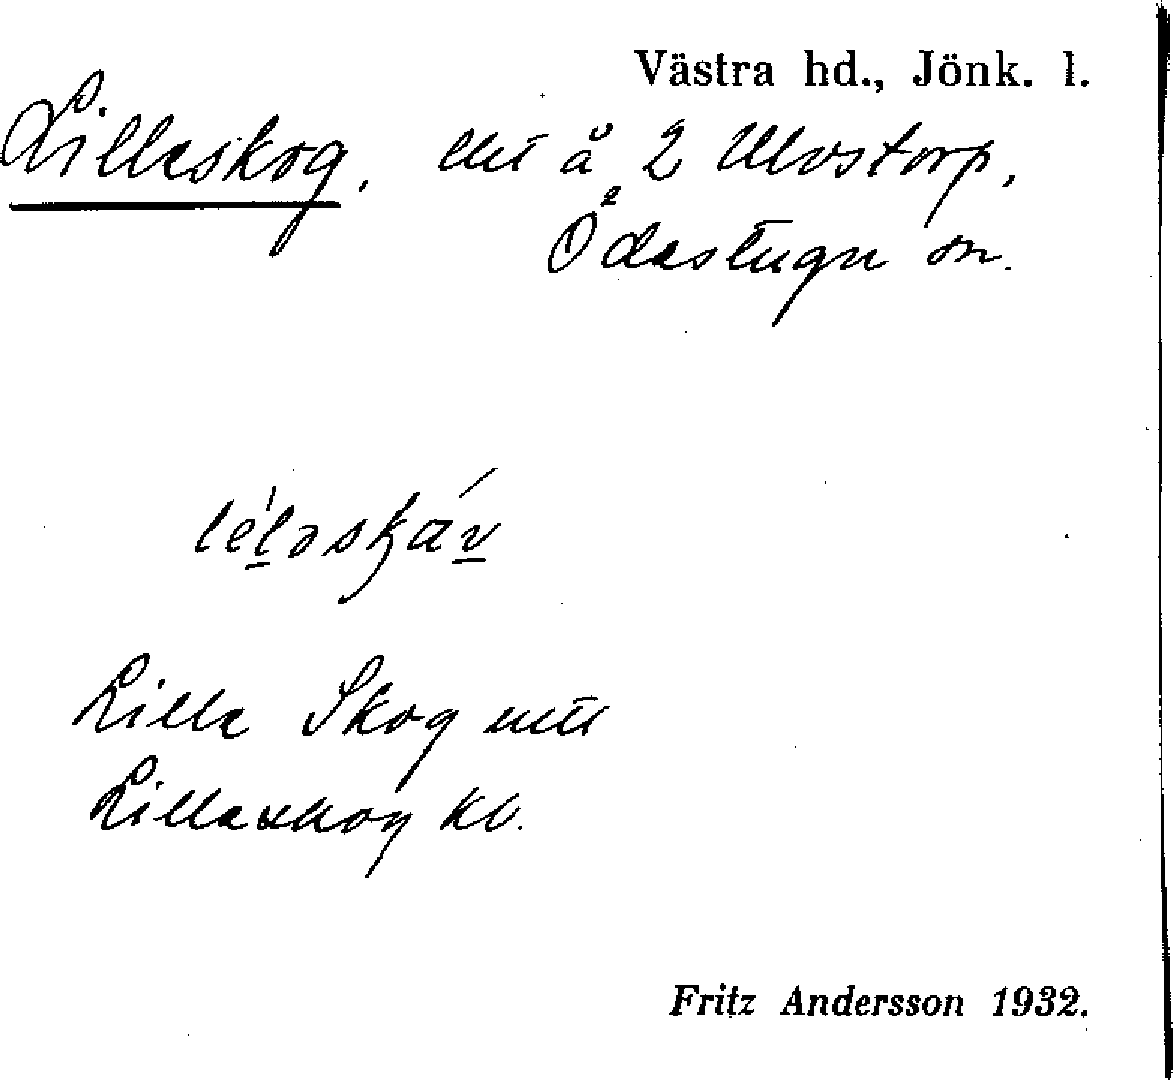 Västra hd., Jönk. l.
Lilleskog, å 2 Ulvstorp,
Ödestugu sn.
Lilla Skog
Lillaskog kb.
Fritz Andersson 1932.